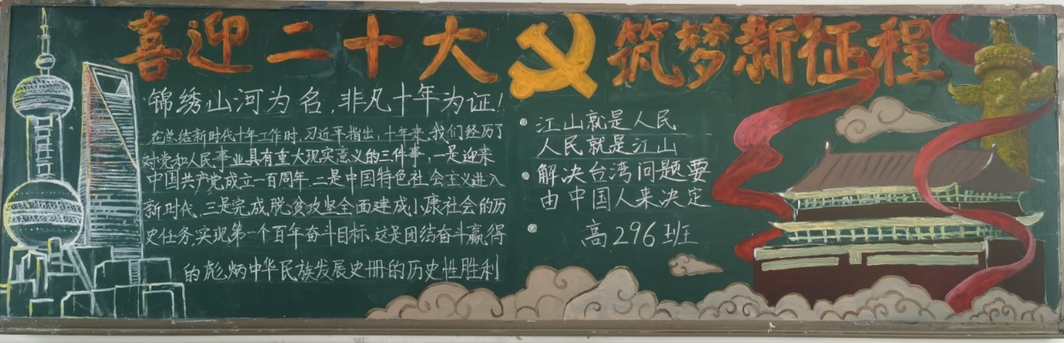 喜迎二十大 筑梦新征程
锦绣山河为名,非凡十年为证!
在总结新时代十年工作时,习近平指出,十年来,我们经历了
对党和人民事业具有重大现实意义的三件事,一是迎来
中国共产党成立一百周年,二是中国特色社会主义进入
新时代,三是完成脱贫攻坚全面建成小康社会的历
史任务,实现第一个百年奋斗目标.这是团结奋斗赢得
的彪炳中华民族发展史册的历史性胜利
江山就是人民
人民就是江山
解决台湾问题要
由中国人来决定
高296班